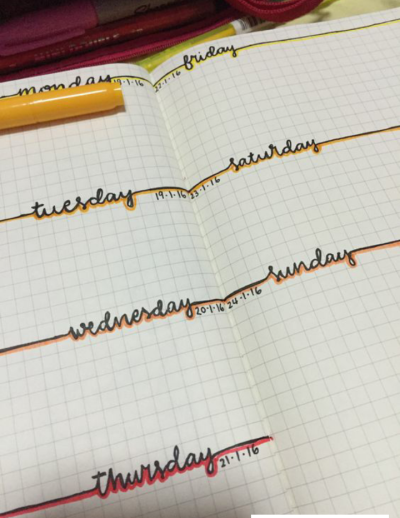 monday
tuesday 19·1·16
wednesday 20·1·16
thursday 21·1·16
friday
22·1·16
saturday
23·1·16
sunday
24·1·16